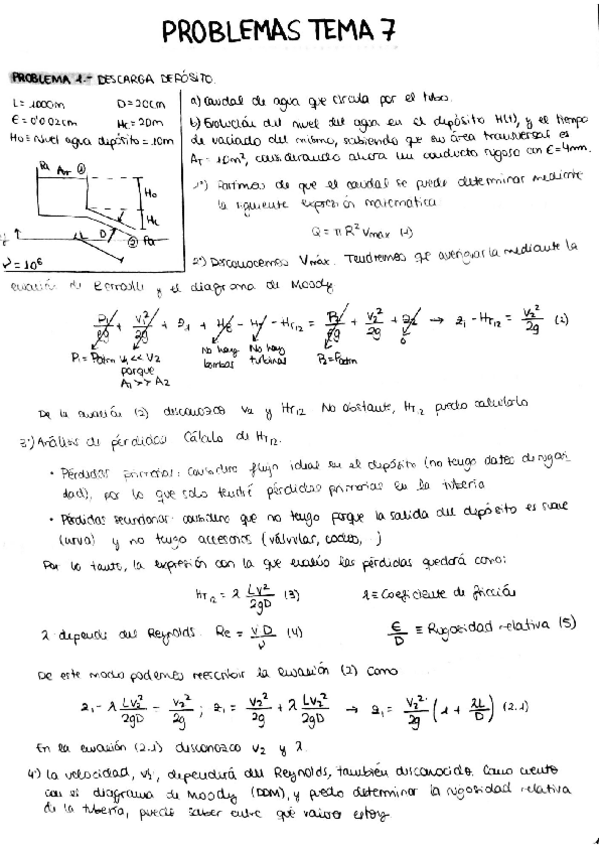 PROBLEMAS TEMA 7
PROBLEMA 1.- DESCARGA DEPÓSITO.
L = 1000m D = 20cm
ϵ = 0'002cm H_L = 20m
H₀ ≡ Nivel agua depósito = 10m
Pa A_T ①
H₀
H_L
D ② Pa
ν = 10⁶
a) Caudal de agua que circula por el tubo.
b) Evolución del nivel del agua en el depósito H(t), y el tiempo
de vaciado del mismo, sabiendo que su área transversal es
A_T = 10m², considerando ahora un conducto rugoso con ϵ = 4mm.
1º) Partimos de que el caudal se puede determinar mediante
la siguiente expresión matemática
Q = π R² Vmax (1)
2º) Desconocemos Vmax. Tendremos que averiguarla mediante la
ecuación de Bernoulli y el diagrama de Moody
P₁/ρg + V₁²/2g + z₁ + H_B - H_T - H_r₁₂ = P₂/ρg + V₂²/2g + z₂ → z₁ - H_r₁₂ = V₂²/2g (2)
P₁ = Patm V₁ << V₂ No hay No hay P₂ = Patm 0
porque bombas turbinas
A₁ >> A₂
De la ecuación (2) desconozco V₂ y H_r₁₂ No obstante, H_r₁₂ puedo calcularlo
3º) Análisis de pérdidas Cálculo de H_r₁₂.
• Pérdidas primarias: considero flujo ideal en el depósito (no tengo datos de rugosi-
dad), por lo que solo tendré pérdidas primarias en la tubería
• Pérdidas secundarias: considero que no tengo porque la salida del depósito es suave
(curva) y no tengo accesorios (válvulas, codos, ..)
Por lo tanto, la expresión con la que evalúo las pérdidas quedará como:
h_r₁₂ = λ LV²/2gD (3) λ ≡ Coeficiente de fricción
λ depende del Reynolds. Re = VD/ν (4) ϵ/D ≡ Rugosidad relativa (5)
De este modo podemos reescribir la ecuación (2) como
z₁ - λ LV₂²/2gD = V₂²/2g ; z₁ = V₂²/2g + λ LV₂²/2gD → z₁ = V₂²/2g (1 + λL/D) (2.1)
En la ecuación (2.1) desconozco V₂ y λ.
4º) La velocidad, V₂, dependerá del Reynolds, también desconocido. Como cuento
con el diagrama de Moody (DDM), y puedo determinar la rugosidad relativa
de la tubería, puedo saber entre qué valores estoy